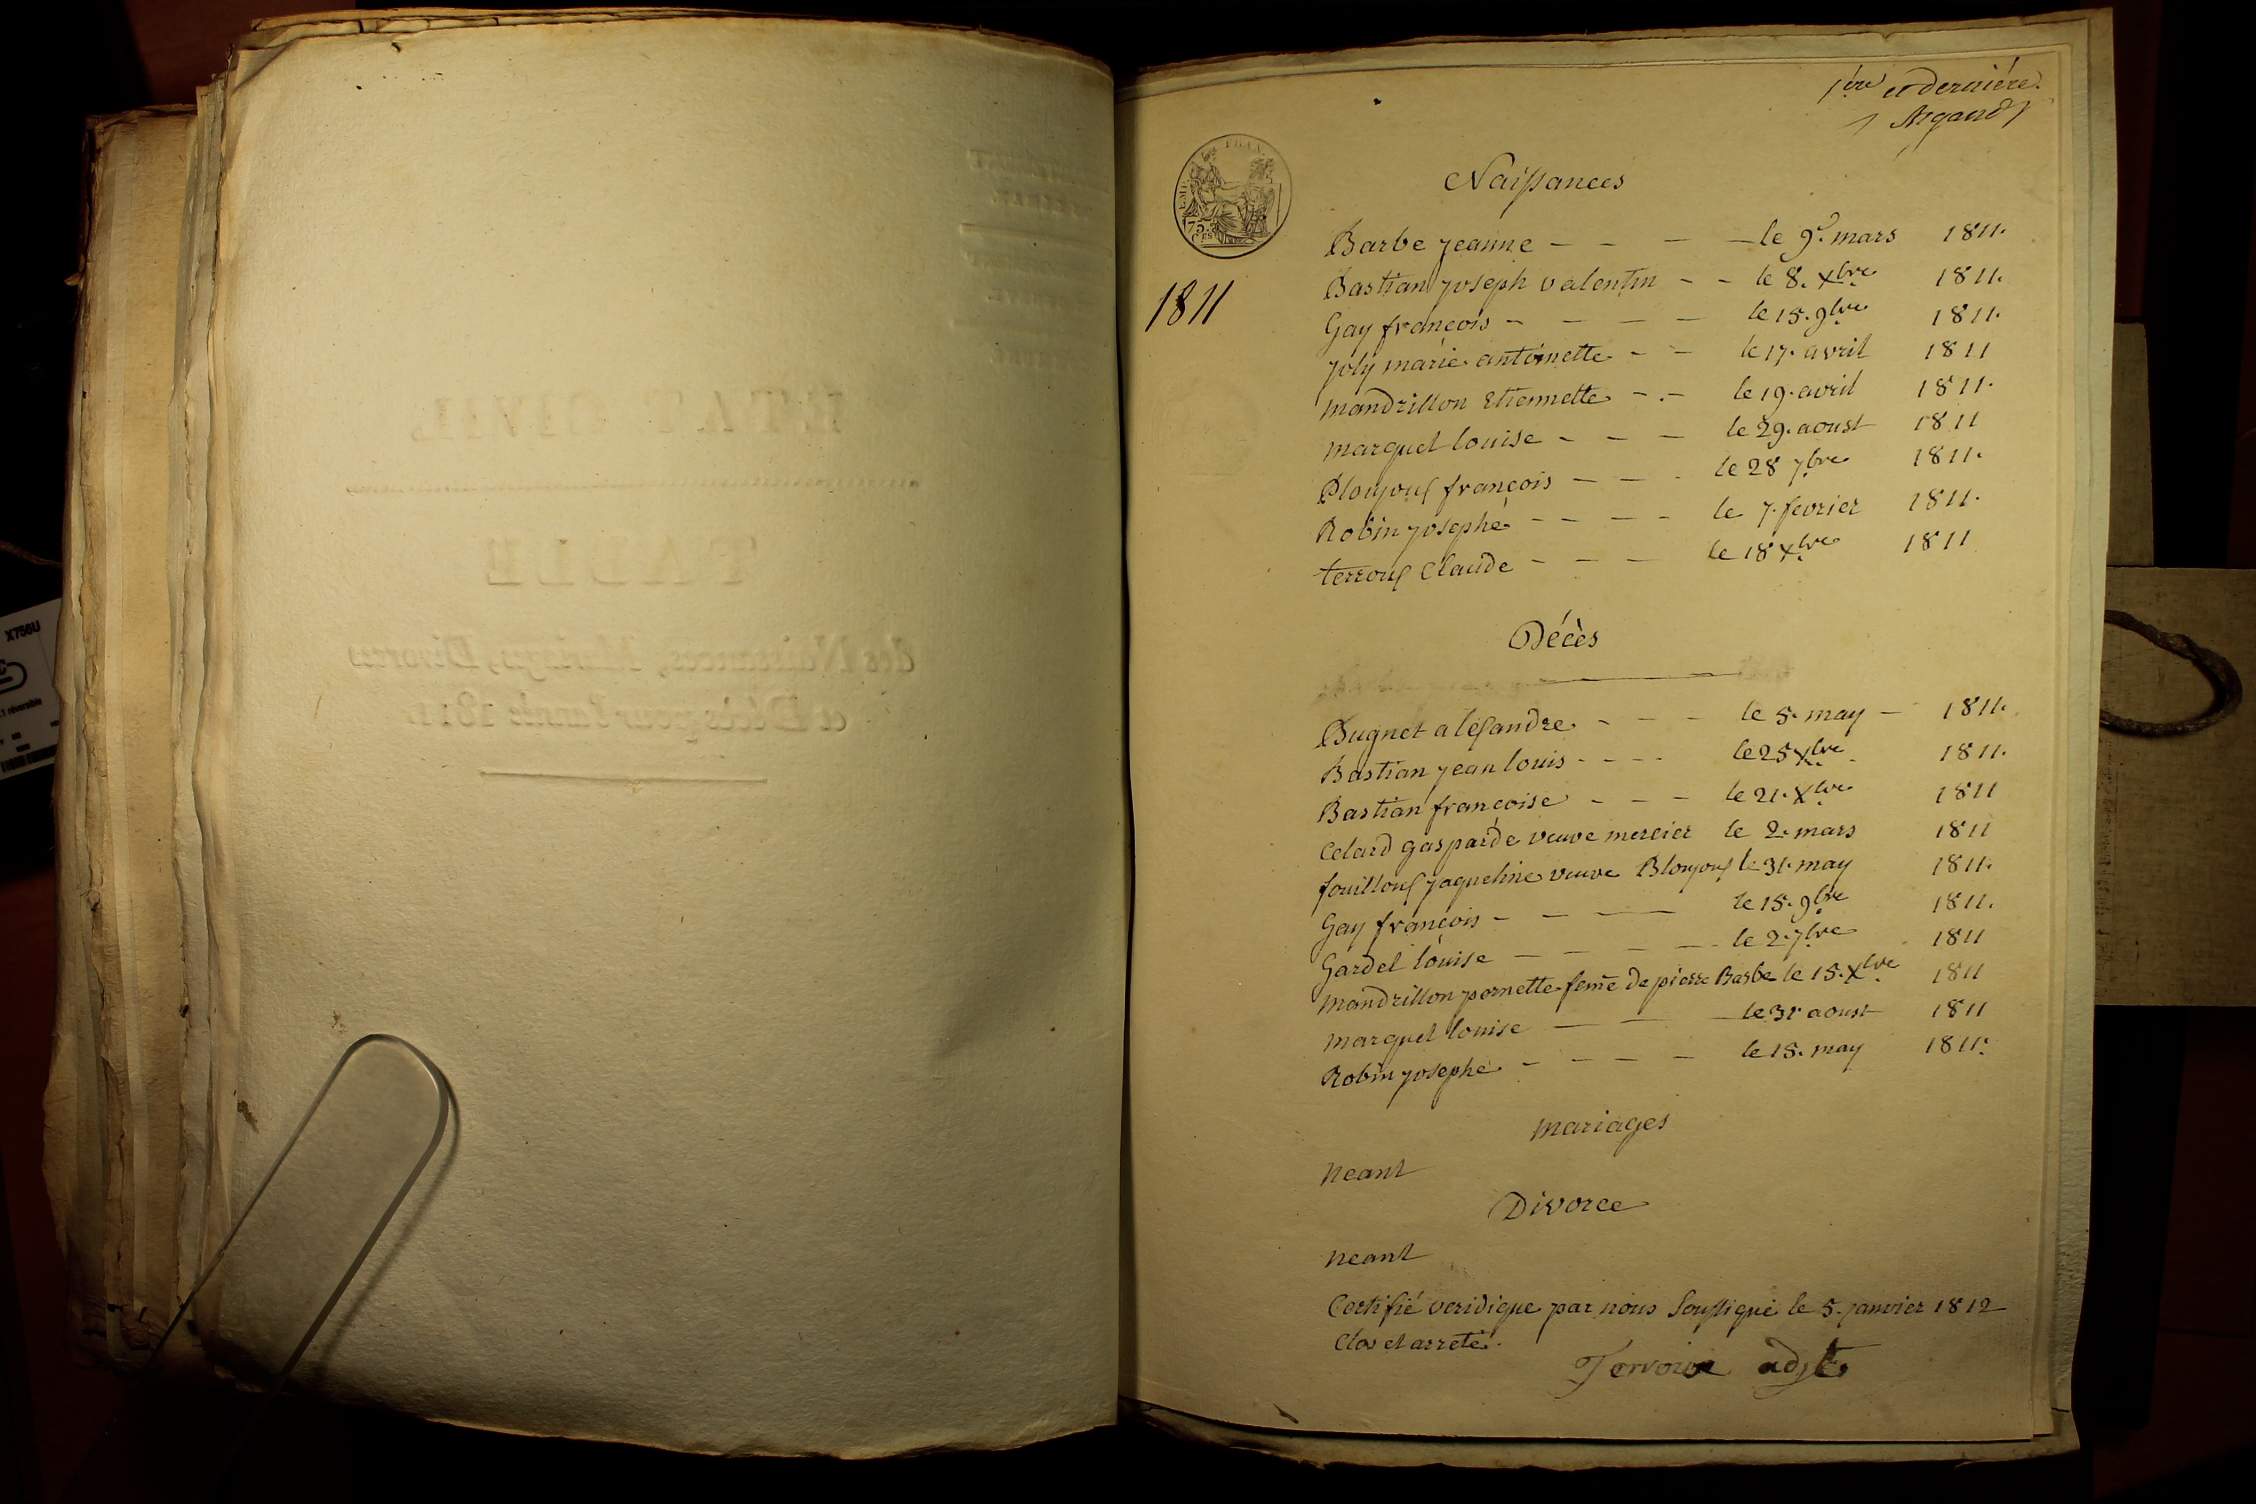 ETAT CIVIL
TABLE
des Naissances, Mariages, Divorces
et Décès pour l'année 1811.
1ère et dernière.
EMP. FRAN.
75.
CES
1811
Naissances
Barbe jeanne - - - - le 9. mars 1811.
Bastian joseph valentin - - le 8. Xbre 1811.
Gay françois - - - - le 15. 9bre 1811.
joly marie antoinette - - le 17. avril 1811
mandrillon Etiennette - . - le 19. avril 1811.
marquet louise - - - le 29. aoust 1811
Blonjous françois - - - le 28 7bre 1811.
Robin josephe - - - - le 7. fevrier 1811.
terrous Claude - - - le 18 Xbre 1811
Décès
Bugnet alesandre - - - le 5. may - 1811.
Bastian jean louis - - - - le 25 Xbre - 1811.
Bastian francoise - - - le 21. Xbre 1811
Celard gasparde veuve mercier le 2. mars 1811
fouillous jaqueline veuve Blonjous le 31. may 1811.
Gay françois - - - le 15. 9bre 1811.
Gardel louise - - - - le 2. 7bre 1811
mandrillon pernette feme de pierre Barbe le 15. Xbre 1811
marquet louise - - - le 31 aoust 1811
Robin josephe - - - - le 15. may 1811.
mariages
neant
Divorce
neant
Certifié veridique par nous soussigné le 5. janvier 1812
Clos et arreté.
adjt
X756U